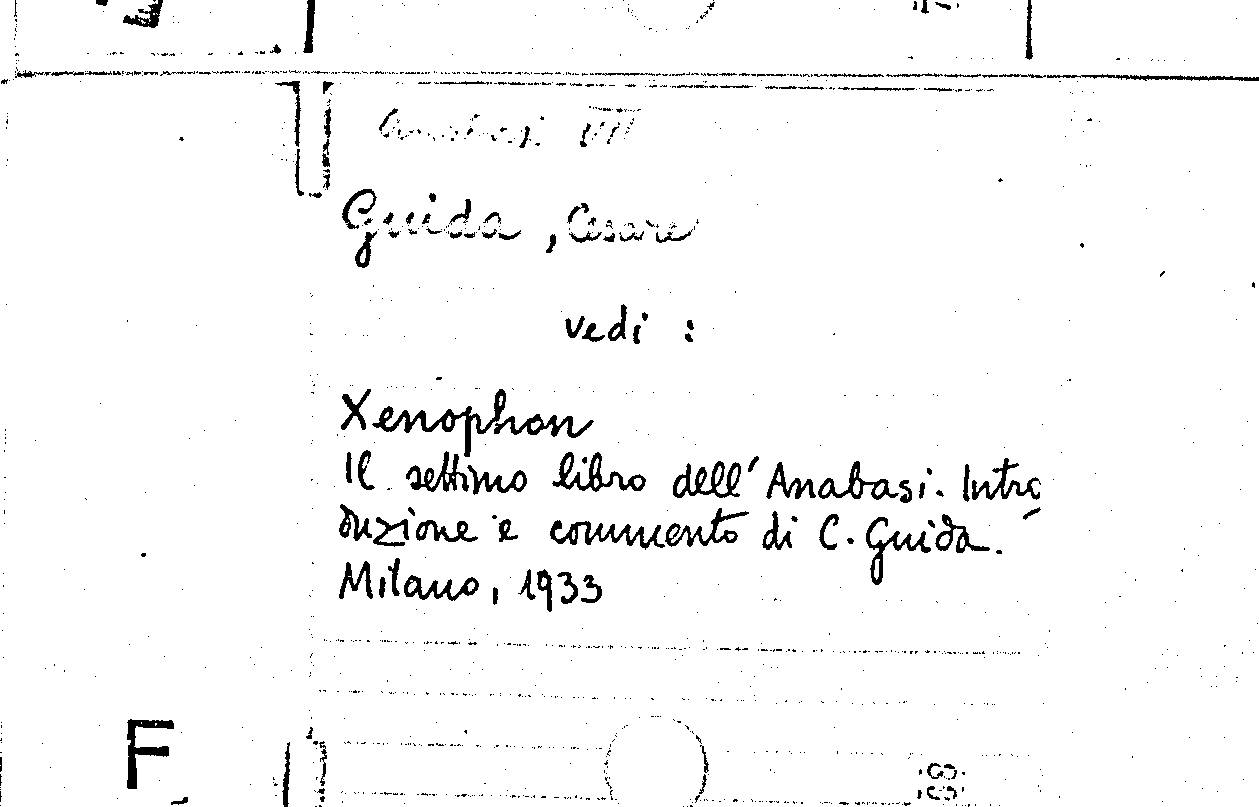 Anabasi VII
Guida, Cesare
vedi :
Xenophon
Il settimo libro dell'Anabasi. Intro
duzione e commento di C. Guida.
Milano, 1933
F